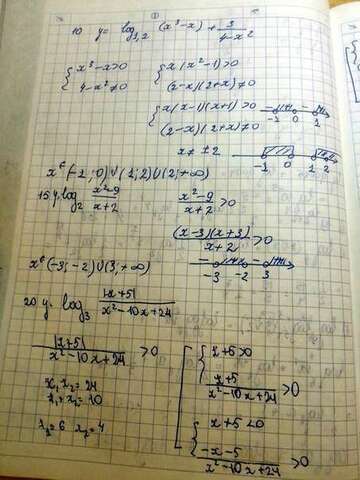 ①
10 y = log₁,₂ (x³-x) + 3/(4-x²)
{ x³-x>0 { x(x²-1)>0
4-x²≠0 (2-x)(2+x)≠0
{ x(x-1)(x+1)>0
(2-x)(2+x)≠0 -1 0 1
x≠ ±2 -1 0 1 2
x ϵ (-1; 0)∪(1; 2)∪(2; +∞)
15. y = log₂ (x²-9)/(x+2) (x²-9)/(x+2) >0
(x-3)(x+3)/(x+2) >0
x ϵ (-3; -2)∪(3; +∞) -3 -2 3
20 y = log₃ |x+5|/(x²-10x+24)
|x+5|/(x²-10x+24) >0 [ { x+5>0
(x+5)/(x²-10x+24) >0
x₁ x₂ = 24
x₁ + x₂ = 10
{ x+5<0
x₁=6 x₂=4
(-x-5)/(x²-10x+24) >0